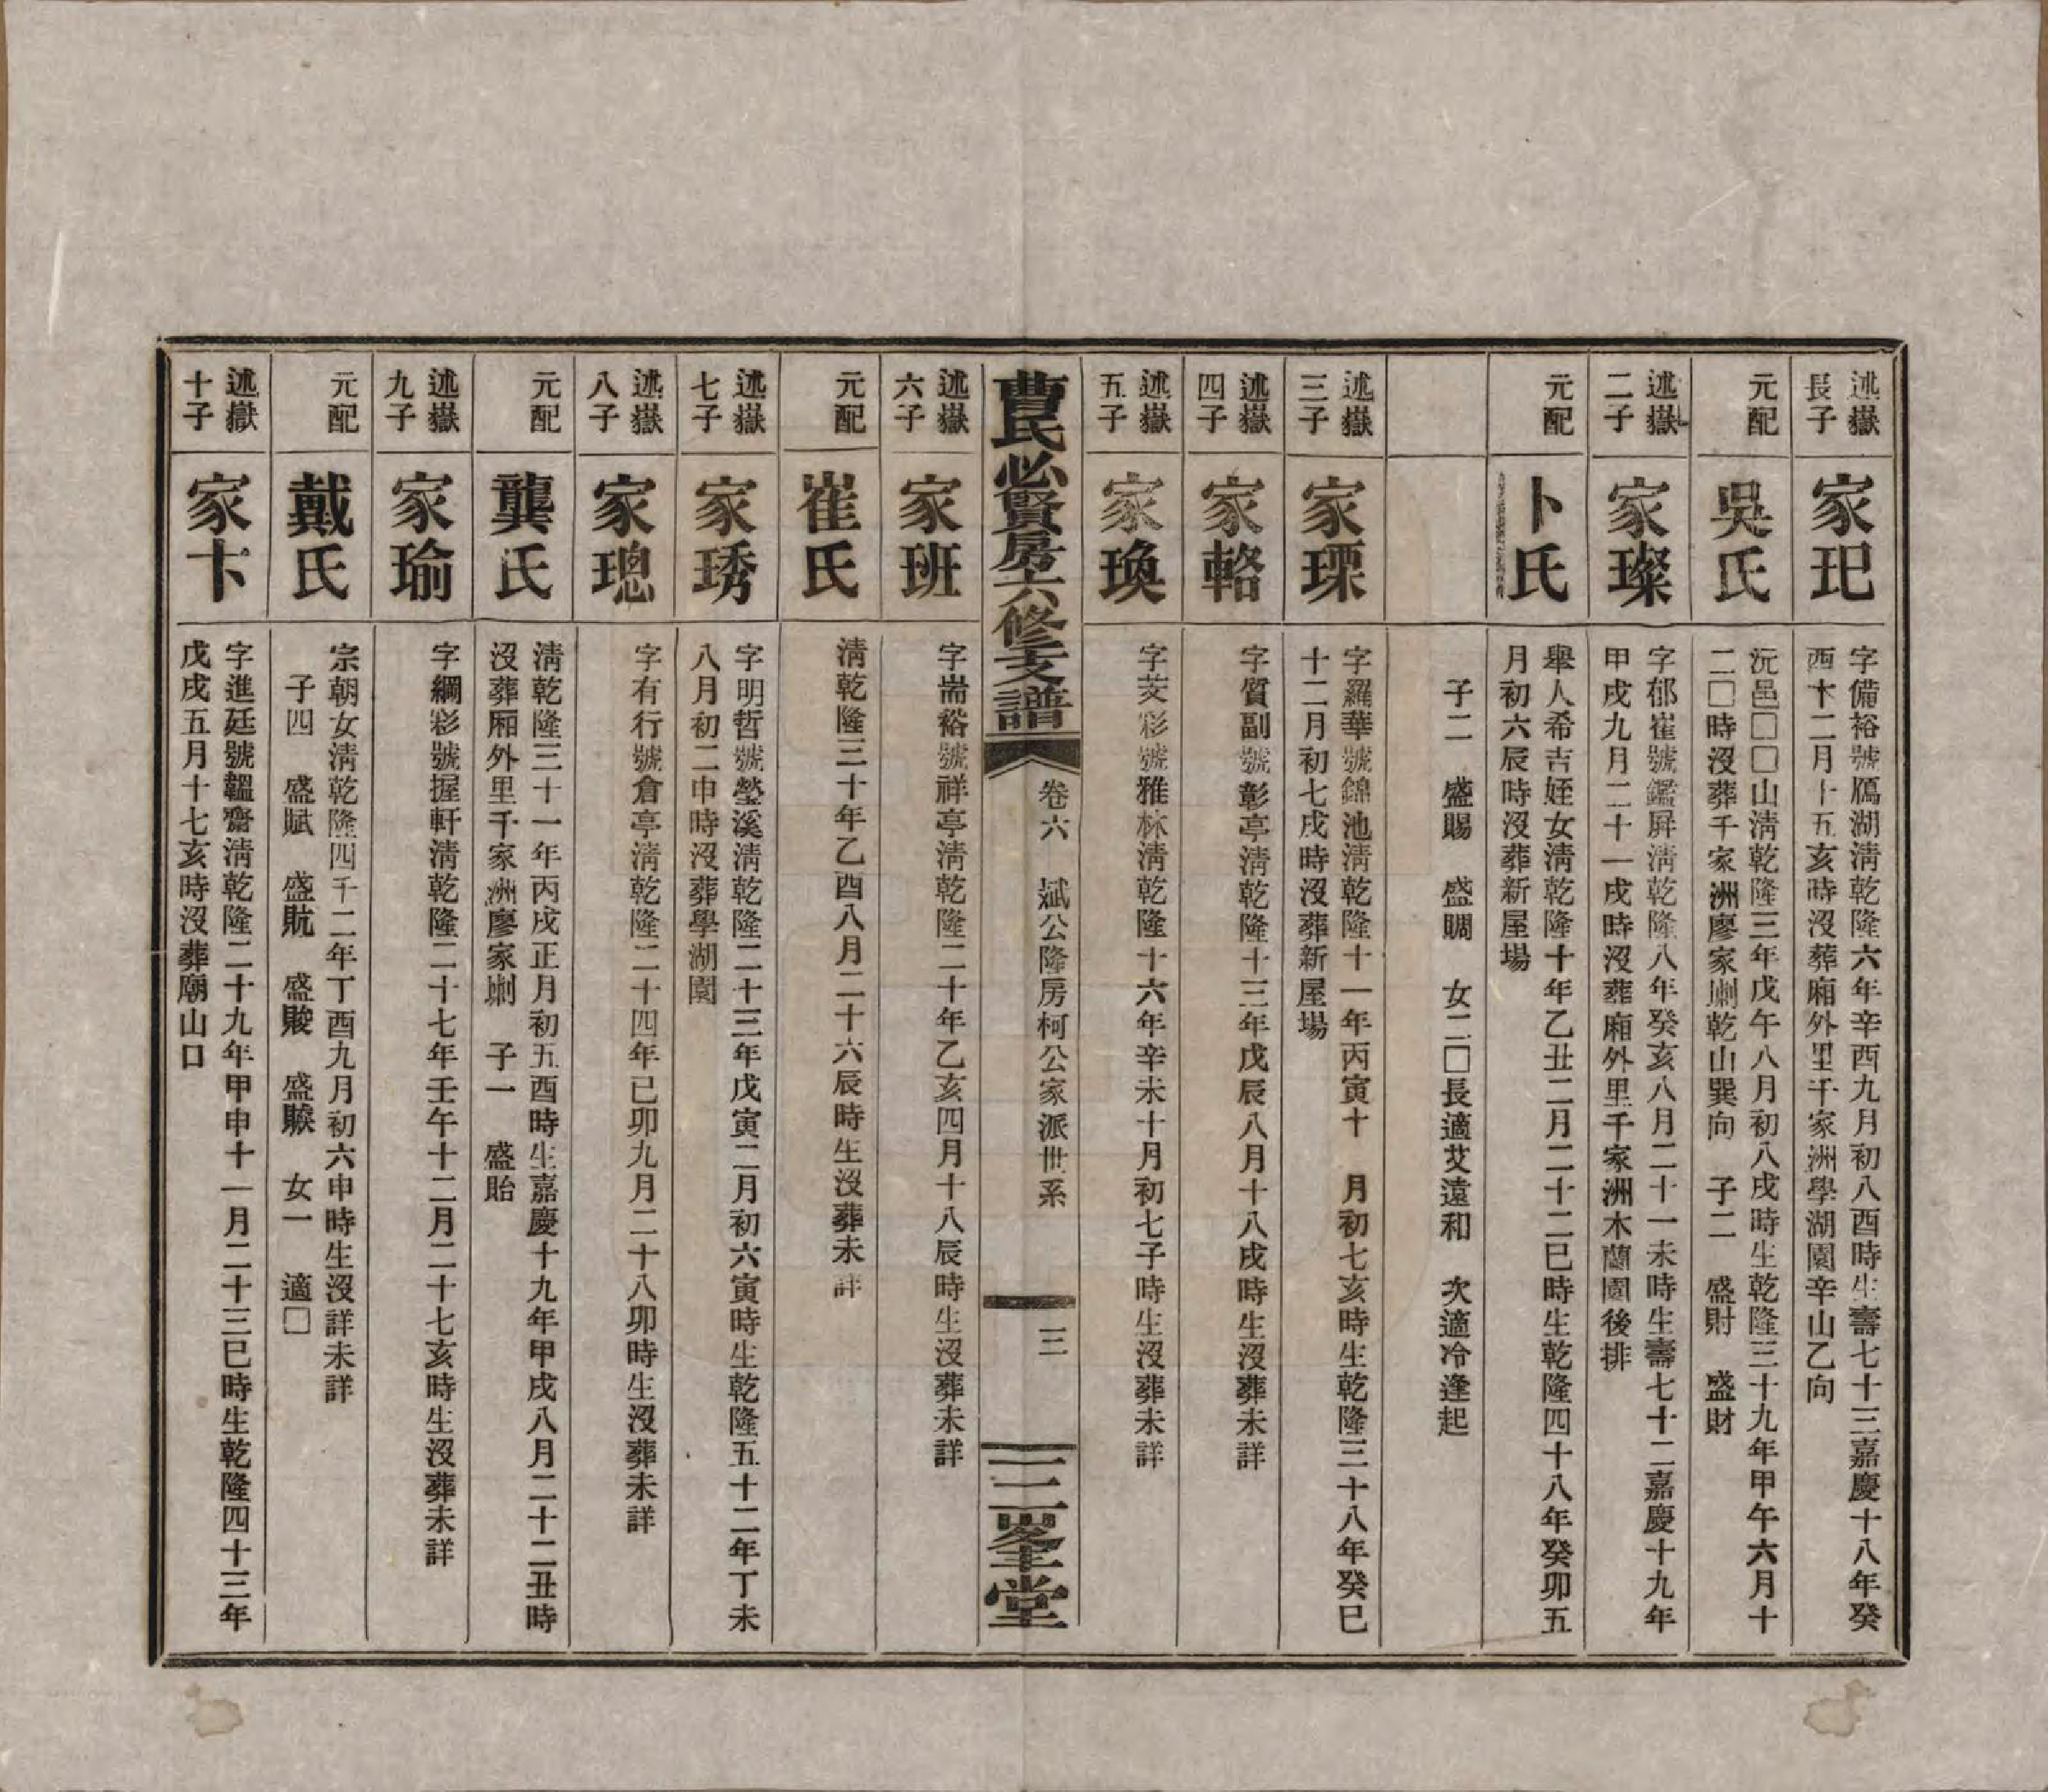 述嶽
長子
家玘
字備裕號鴈湖淸乾隆六年辛酉九月初八酉時生壽七十三嘉慶十八年癸
酉十二月十五亥時沒葬廂外里千家洲學湖園辛山乙向
元配
吳氏
沅邑□□山淸乾隆三年戊午八月初八戌時生乾隆三十九年甲午六月十
二□時沒葬千家洲廖家㘵乾山巽向　子二　盛財　盛財
述嶽
二子
家璨
字郁崔號鑑屛淸乾隆八年癸亥八月二十一未時生壽七十二嘉慶十九年
甲戌九月二十一戌時沒葬廂外里千家洲木蘭園後排
元配
卜氏
舉人希吉姪女淸乾隆十年乙丑二月二十二巳時生乾隆四十八年癸卯五
月初六辰時沒葬新屋場
子二　盛賜　盛賙　女二□長適艾遠和　次適冷逢起
述嶽
三子
家瑮
字羅華號錦池淸乾隆十一年丙寅十　月初七亥時生乾隆三十八年癸巳
十二月初七戌時沒葬新屋場
述嶽
四子
家輅
字質副號彰亭淸乾隆十三年戊辰八月十八戌時生沒葬未詳
述嶽
五子
家瑍
字芰彩號雅林淸乾隆十六年辛未十月初七子時生沒葬未詳
曹氏必賢房六修支譜
卷六　斌公隆房柯公家派世系
三
三畧堂
述嶽
六子
家班
字崙裕號祥亭淸乾隆二十年乙亥四月十八辰時生沒葬未詳
元配
崔氏
淸乾隆三十年乙酉八月二十六辰時生沒葬未詳
述嶽
七子
家琇
字明哲號瑩溪淸乾隆二十三年戊寅二月初六寅時生乾隆五十二年丁未
八月初二申時沒葬學湖園
述嶽
八子
家璁
字有行號倉亭淸乾隆二十四年已卯九月二十八卯時生沒葬未詳
元配
龔氏
淸乾隆三十一年丙戌正月初五酉時生嘉慶十九年甲戌八月二十二丑時
沒葬廂外里千家洲廖家㘵　子一　盛貽
述嶽
九子
家瑜
字綱彩號握軒淸乾隆二十七年壬午十二月二十七亥時生沒葬未詳
元配
戴氏
宗朝女淸乾隆四千二年丁酉九月初六申時生沒詳未詳
子四　盛賦　盛貥　盛賧　盛賤　女一　適□
述嶽
十子
家卞
字進廷號韞齋淸乾隆二十九年甲申十一月二十三巳時生乾隆四十三年
戊戌五月十七亥時沒葬廟山口